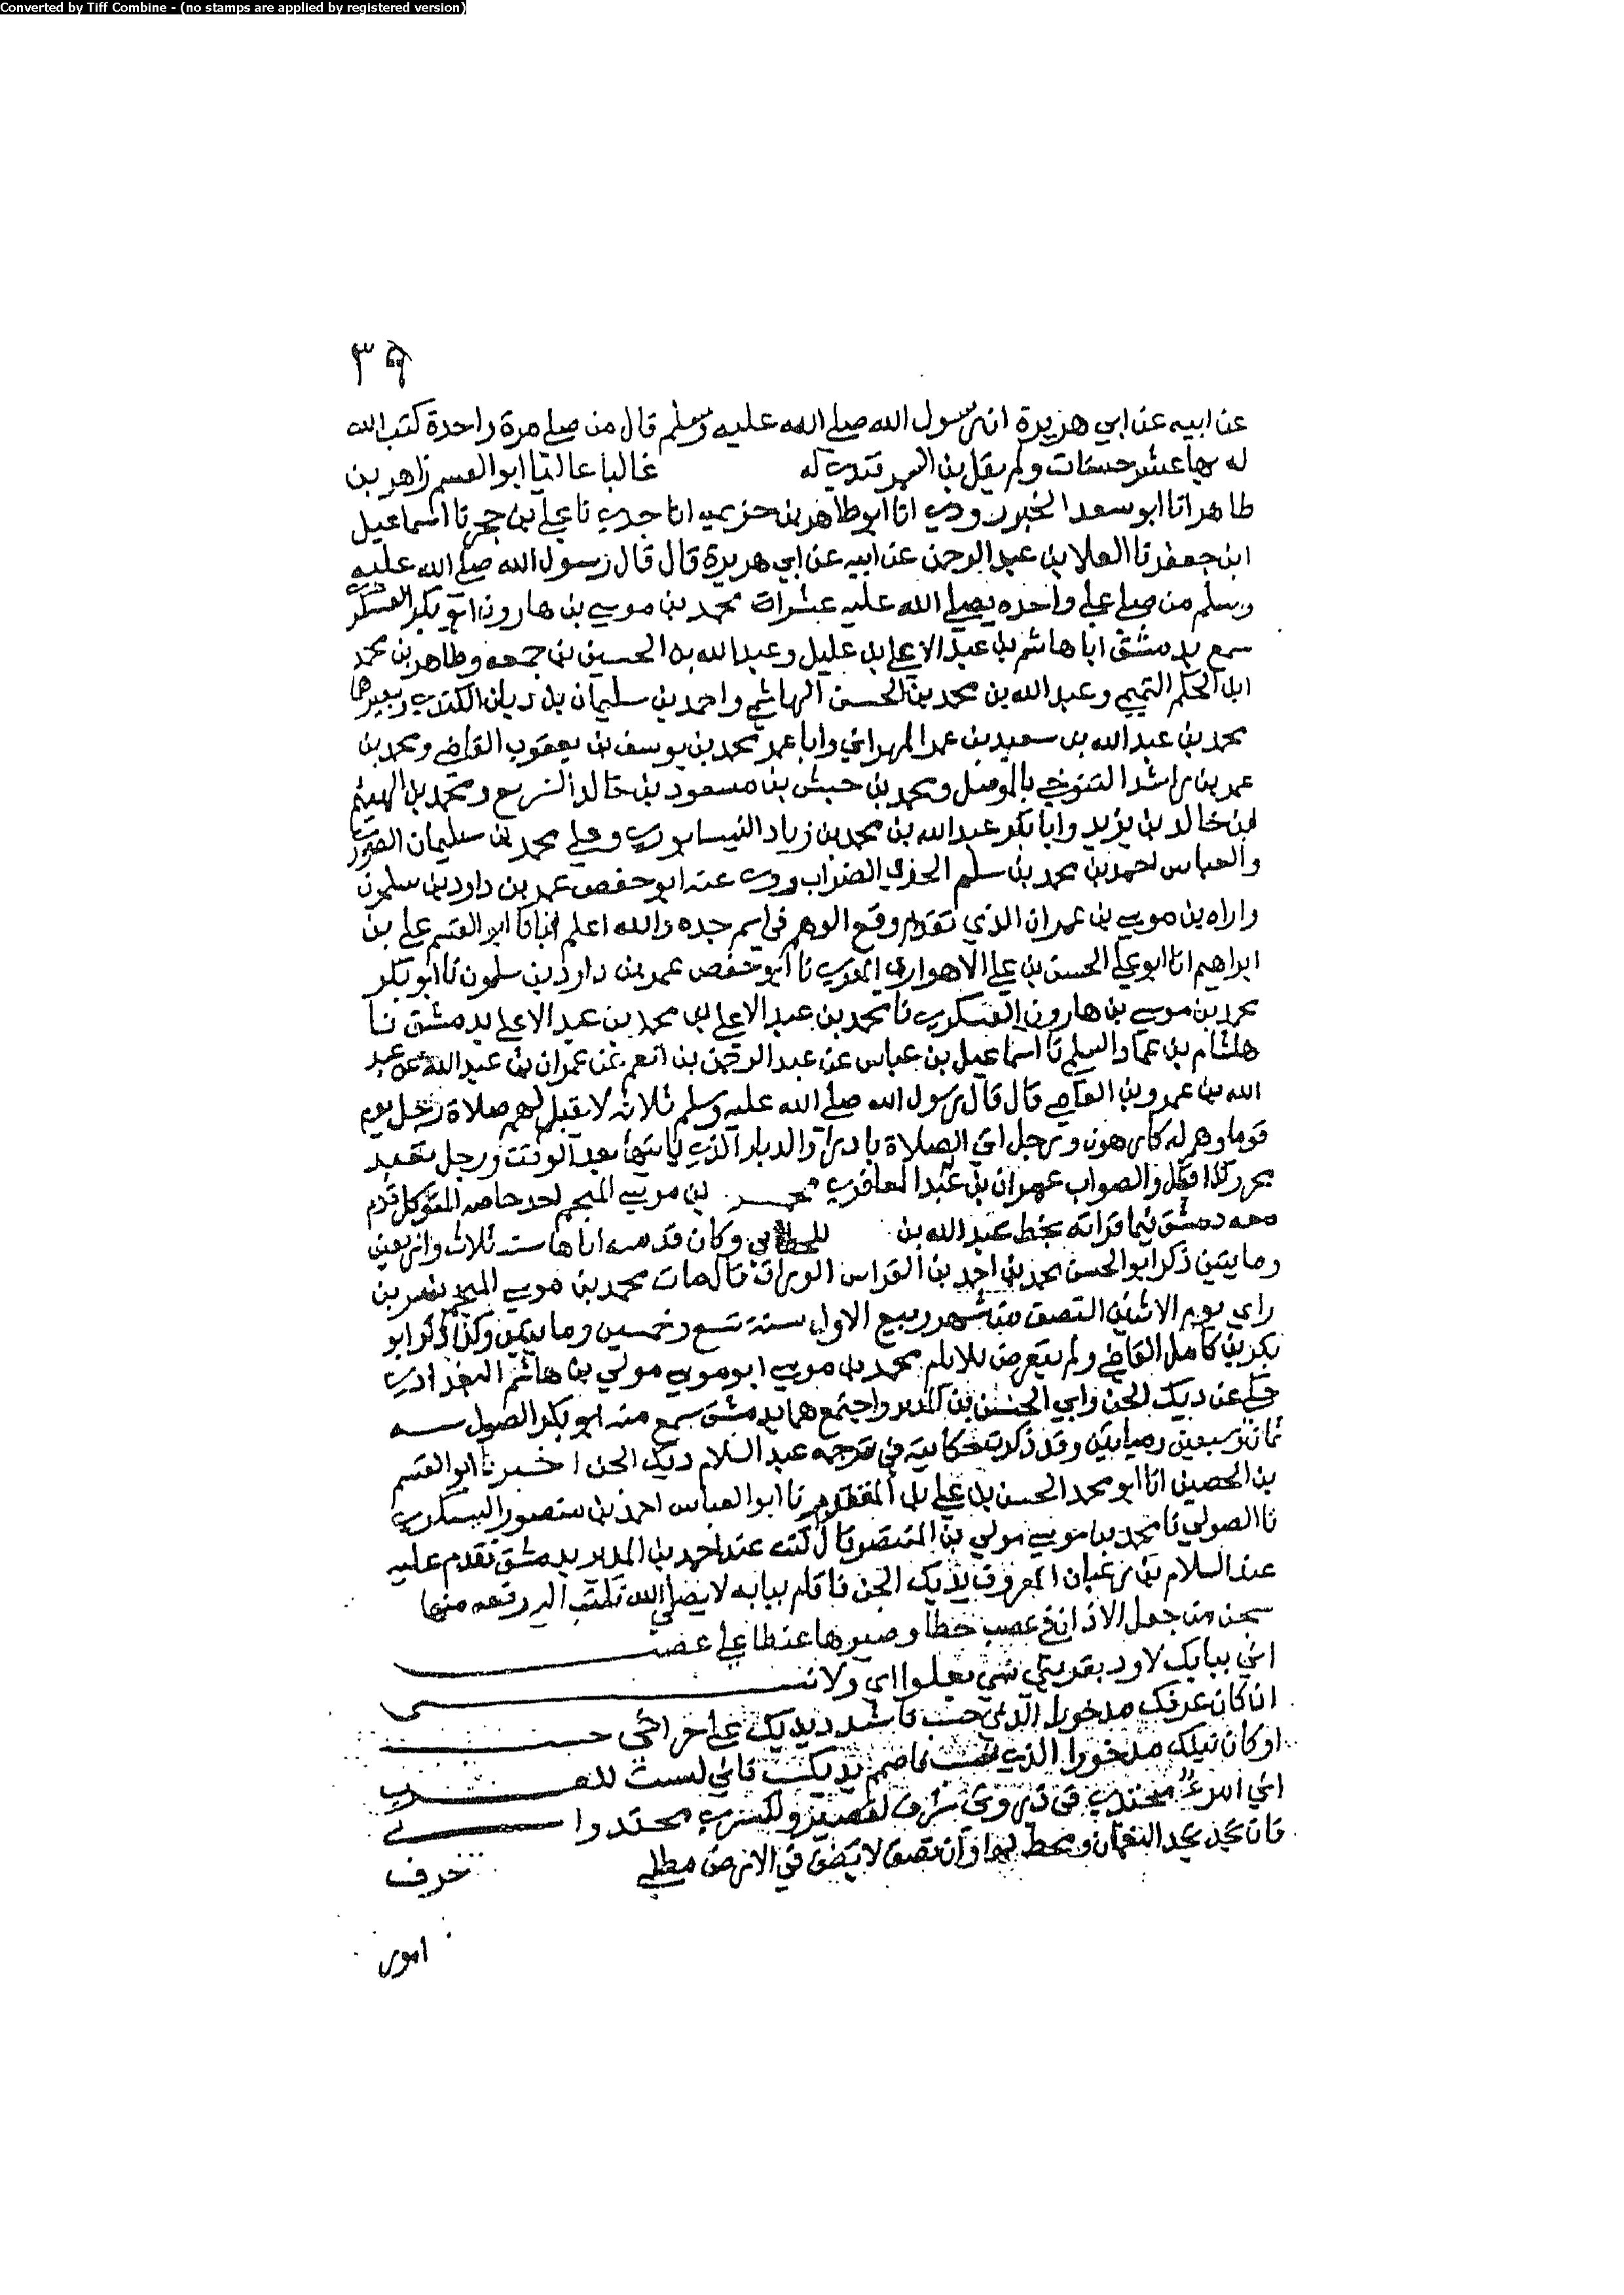 Converted by Tiff Combine - (no stamps are applied by registered version)
٣٩
عن ابيه عن ابي هريرة ان رسول الله صلى الله عليه وسلم قال من صلي مرة واحدة كتب الله
له بها عشر حسنات ولم يقل بن السمرقندي له غالبا عاليا ابو القسم زاهر بن
طاهر انا ابو سعد الجنزرودي انا ابو طاهر بن خزيمه انا جدي نا علي بن حجر نا اسماعيل
ابن جعفر نا العلا بن عبد الرحمن عن ابيه عن ابي هريرة قال قال رسول الله صلى الله عليه
وسلم من صلي علي واحده يصلي الله عليه عشرات محمد بن موسي بن هارون ابو بكر العسكري
سمع بدمشق ابا هاشم بن عبد الاعلي بن عليل وعبد الله بن الحسين بن جمعه وطاهر بن محمد
ابن الحكم التميمي وعبد الله بن محمد بن الحسن الهاشمي واحمد بن سليمان بن زبان الكندي وبغيرها
محمد بن عبد الله بن سعيد بن عمر المهراني وابا عمر محمد بن يوسف بن يعقوب القاضي ومحمد بن
عمر بن راشد التنوخي بالموصل ومحمد بن حبش بن مسعود بن خالد السريع ومحمد بن الهيثم
ابن خالد بن يزيد وابا بكر عبد الله بن محمد بن زياد النيسابوري وعلي محمد بن سليمان الصوري
والعباس احمد بن محمد بن سلم الضراب روي عنه ابو حفص عمر بن داود بن سلمون
واراه بن موسي بن عمران الذي تقدم وقع الوهم في اسم جده والله اعلم انبانا ابو القسم علي بن
ابراهيم انا ابو علي الحسن بن علي الاهوازي المقري نا ابو حفص عمر بن داود بن سلمون نا ابو بكر
محمد بن موسي بن هارون العسكري نا محمد بن عبد الاعلي بن محمد بن عبد الاعلي بدمشق نا
هشام بن عمار السلمي نا اسماعيل بن عياس عن عبد الرحمن بن انعم عن عمران بن عبد الله عن عبد
الله بن عمرو بن العاصي قال قال رسول الله صلى الله عليه وسلم ثلاثه لا يقبل لهم صلاة رجل يوم
قوما وهم له كارهون ورجل اتي الصلاة بادبارا والدبار الذي ياتيها بعد الوقت ورجل تعبد
محرر كذا قال والصواب عمران بن عبد المعافري محمد بن موسي المنجم احد خاصه المتوكل قدم
معه دمشق فيما قراته بخط عبد الله بن الخطابي وكان قدمه اياها سنه ثلاث واربعين
ومايتين ذكر ابو الحسن محمد بن احمد بن القواس الوراق قال مات محمد بن موسي المنجم بسر بن
راي يوم الاثنين النصف من شهر ربيع الاول سنة تسع وخمسين ومايتين وكذا ذكر ابو
بكر بن كامل القاضي ولم يتعرض للايام محمد بن موسي ابو موسي مولي بن هاشم البغدادي
حكي عن ديك الجن وابي الحسن بن المدبر واجتمع هما بدمشق سمع منه ابو بكر الصولي سنه
ثمان وسبعين ومايتين وقد ذكرت حكايته في ترجمه عبد السلام ديك الجن اخبرنا ابو القسم
بن الحصين انا ابو محمد الحسن بن علي بن المقتدر نا ابو العباس احمد بن منصور اليشكري
نا الصولي نا محمد بن موسي مولي بن المنتصر قال كنت عند احمد بن المدبر بدمشق تقدم عليه
عبد السلام بن رغبان المعروف بديك الجن فاقام ببابه لا يصل اليه فكتب اليه رقعه منها
اني ببابك لا ود يقربني
انا كان عرفك مدخورا الذي حسب فاشدد يديك علي حر اخي حسب
او كان نيلك مدخورا الذي يديك فاني لست للعرب
اني امرء محتدي في ذروتي شرف لقيصر ولكسري محتدوا بي
وان تصق لا يضق في الارض مطلبي
حرف
امور